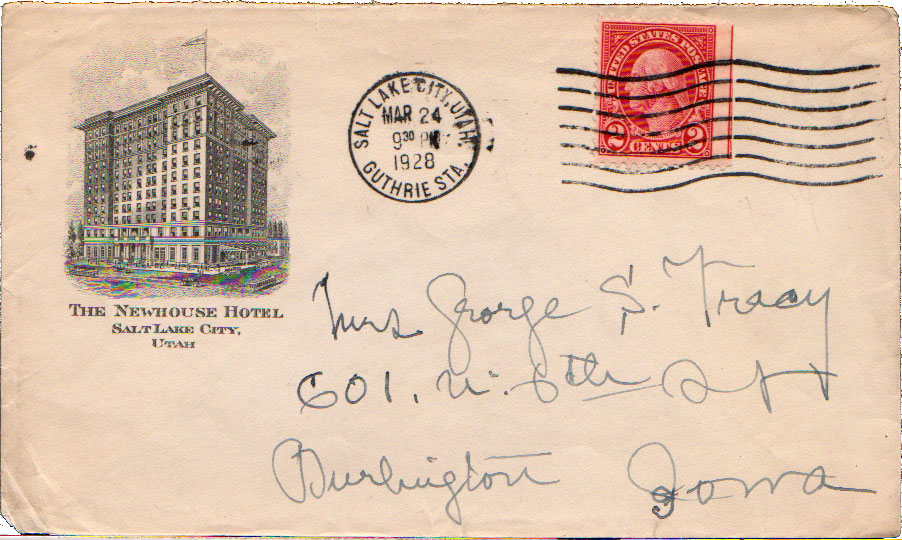 THE NEWHOUSE HOTEL
SALT LAKE CITY,
UTAH
SALT LAKE CITY, UTAH
MAR 24
9³⁰ PM
1928
GUTHRIE STA.
UNITED STATES POSTAGE
2 CENTS 2
Mrs George S. Tracy
601. N. 6th St
Burlington Iowa